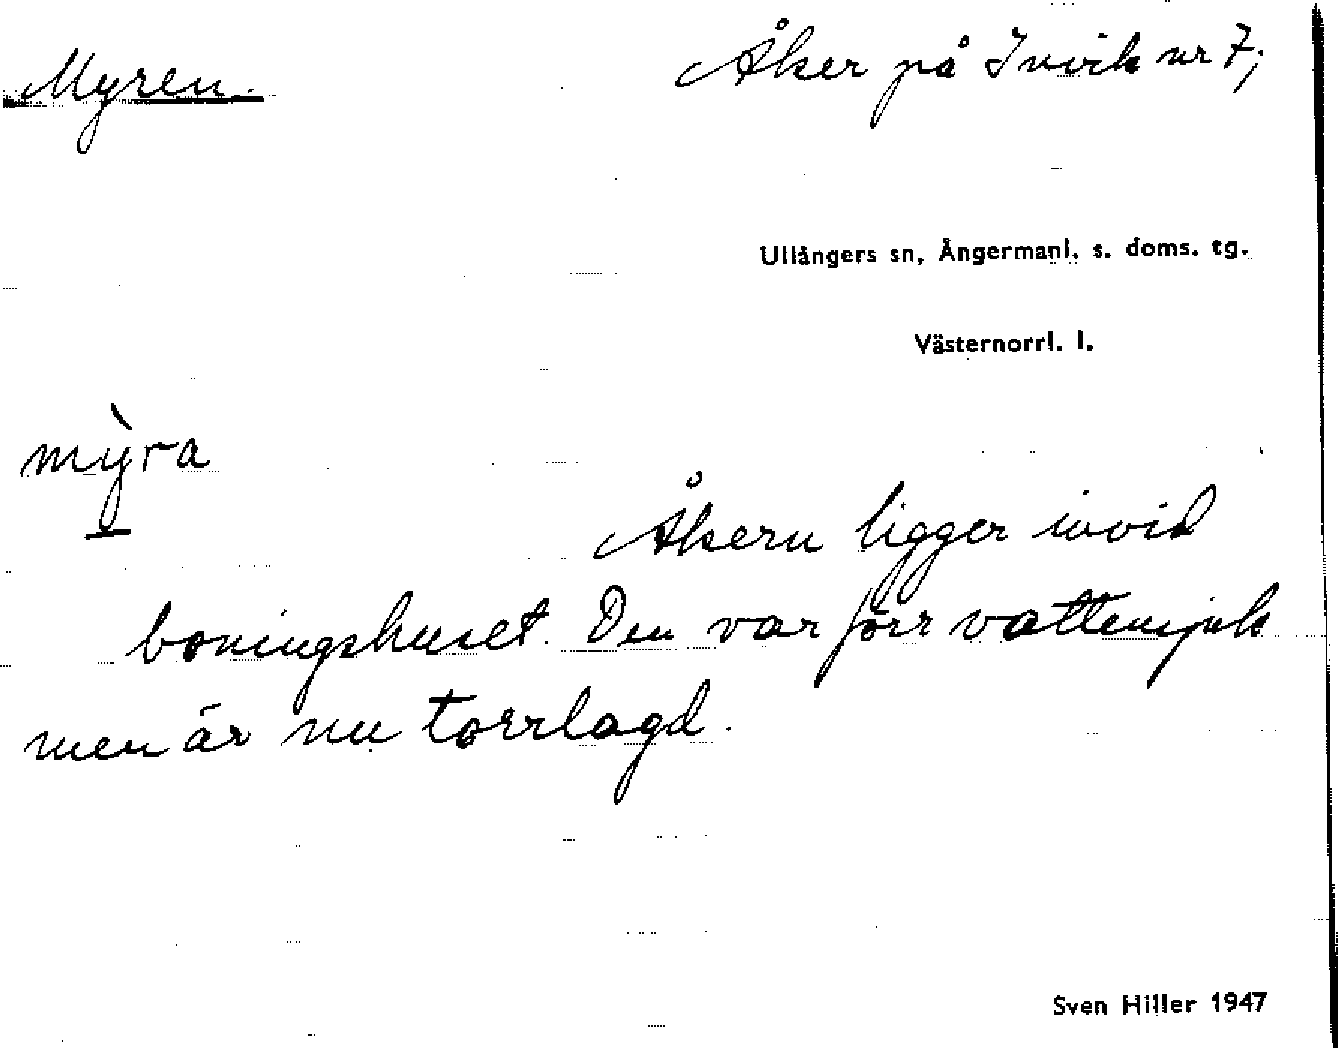 Myren.
Åker på Invik nr 7;
Ullångers sn, Ångermanl. s. doms. tg.
Västernorrl. l.
mỳra
Åkern ligger invid
boningshuset. Den var förr vattensjuk
men är nu torrlagd.
Sven Hiller 1947